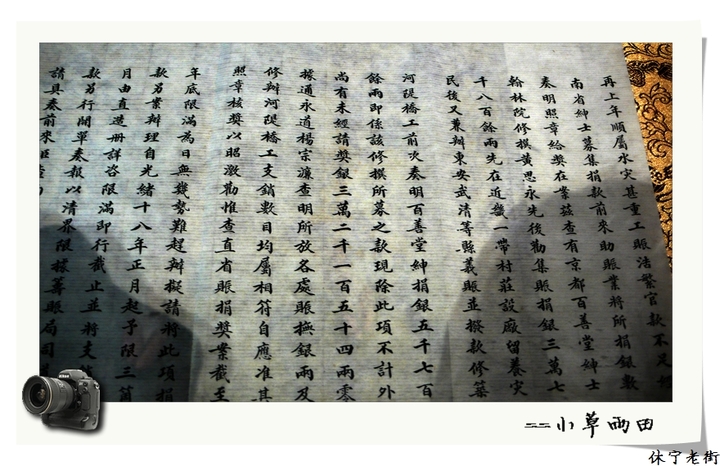 再上年順屬水災甚重工賬浩繁官款不足
南省紳士募集捐款前來助賑業將所捐銀數
奏明照章給獎在案茲查有京都百善堂紳士
翰林院修撰黃思永先後勸集賑捐銀三萬七
千八百餘兩先在近畿一帶村莊設廠留養灾
民後又兼辦東安武清等縣義賑並撥款修築
河隄橋工前次奏明百善堂紳捐銀五千七百
餘兩即係該修撰所募之款現除此項不計外
尚有未經請獎銀三萬二千一百五十四兩零
據通永道楊宗濂查明所放各處賑撫銀兩及
修辦河隄橋工支銷數目均屬相符自應准其
照章核獎以昭激勸惟查直省賑捐獎案截至
年底限滿為日無幾勢難趕辦擬請將此項捐
款另案辦理自光緒十八年正月起予限三箇
月由直造册詳咨限滿即行截止並將支
款另行開單奏報以清界限據籌賑局司
請具奏前來
二二小草雨田
休宁老街
Nikon